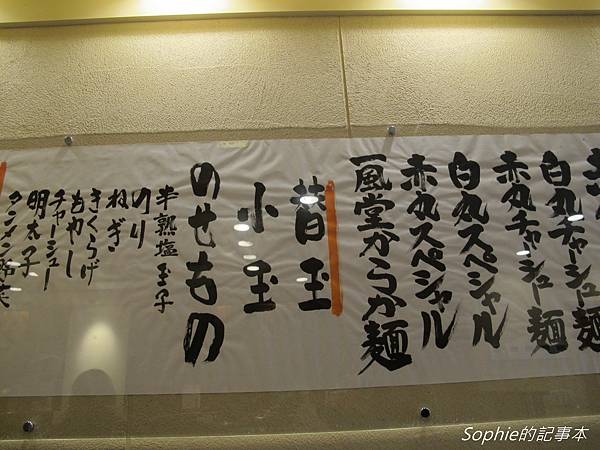 白丸チャーシュー麺
赤丸チャーシュー麺
白丸スペシャル
赤丸スペシャル
一風堂からか麺
替玉
小玉
のせもの
半熟塩玉子
のり
ねぎ
きくらげ
もやし
チャーシュー
明太子
Sophie的記事本